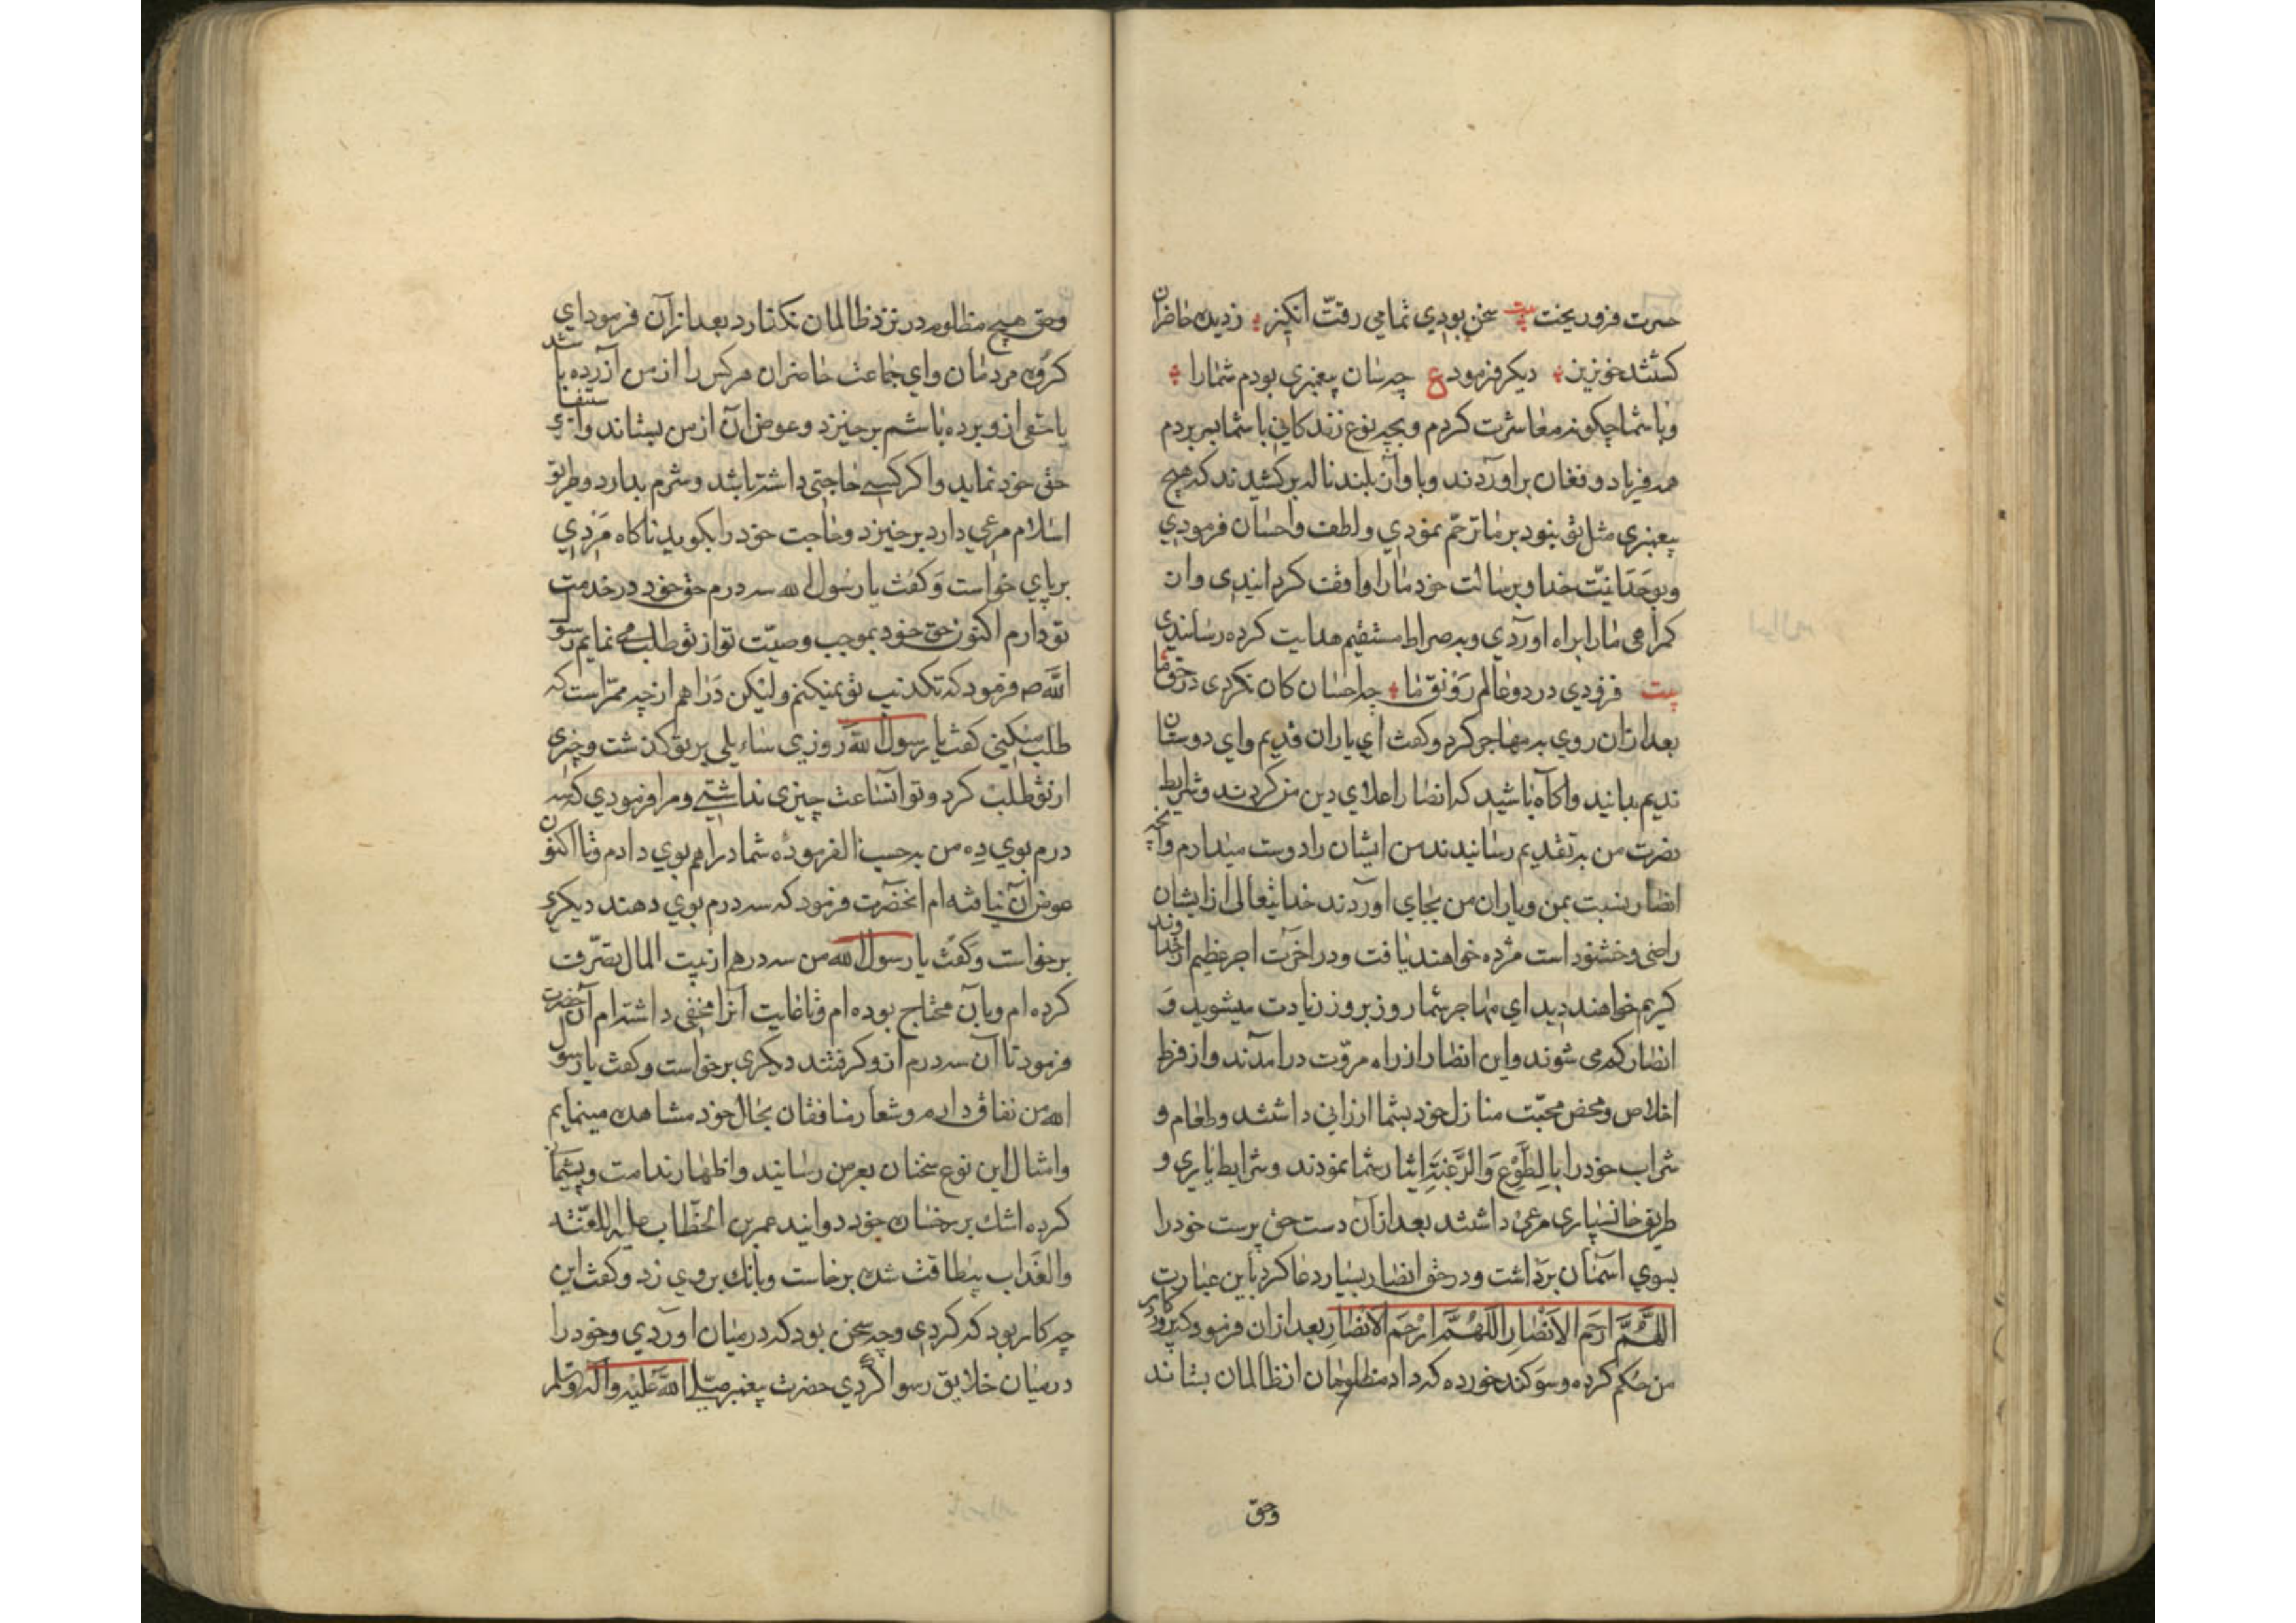 حسرت فرو ریخت بیت سخن بودی تمامی رقت انکیز زدیده حاضران
کشتند خونریز دیکر فرمود ع چه سان پیغمبری بودم شما را
و با شما چکونه معاشرت کردم و بچه نوع زندکانی با شما بسر بردم
همه فریاد و فغان براوردند و باواز بلند ناله برکشیدند که هیچ
پیغمبری مثل تو نبود بر ما ترحّم نمودی و لطف و احسان فرمودی
و بوحدانیّت خدا و برسالت خود ما را واقف کردانیدی و از
کمراهی ما را براه اوردی و به صراط مستقیم هدایت کرده رسانیدی
بیت فزودی در دو عالم رونق ما چه احسان کان نکردی در حق ما
بعد ازان روی به مهاجر کرد و کفت ای یاران قدیم و ای دوستان
ندیم بدانید و اکاه باشید که انصار اعلای دین من کردند و شرایط
نصرت من به تقدیم رسانیدند من ایشان را دوست میدارم و آنچه
انصار نسبت بمن و یاران من بجای اوردند خدایتعالی از ایشان
راضی و خشنود است مژده خواهند یافت و در اخرت اجر عظیم از خداوند
کریم خواهند دید ای مهاجر شما روز بروز زیادت میشوید و
انصار کم می شوند و این انصار از راه مروّت درامدند و از فرط
اخلاص و محض محبّت منازل خود بشما ارزانی داشتند و طعام و
شراب خود را بالطّوع والرّغبة ایثار شما نمودند و شرایط یاری و
طریق جانسپاری مرعی داشتند بعد ازان دست حق پرست خود را
بسوی اسمان برداشت و در حق انصار بسیار دعا کرد باین عبارت
اللّهمّ ارحم الانصار اللّهمّ ارحم الانصار بعد ازان فرمود که پروردکار
من حکم کرده و سوکند خورده که داد مظلومان از ظالمان بستاند
وحق
وحق هیچ مظلوم در نزد ظالمان نکذارد بعد ازآن فرمود ای
کروه مردمان و ای جماعت حاضران هر کس را از من آزرده باشد
یا حقی از و برده باشم برخیزد و عوض آن از من بستاند و استیفای
حق خود نماید و اکر کسی حاجتی داشته باشد و شرم بدارد و طریق
اسلام مرعی دارد برخیزد و حاجت خود را بکوید ناکاه مردی
برپای خواست و کفت یا رسول الله سه درم حق خود در خدمت
تو دارم اکنون حق خود بموجب وصیّت تو از تو طلب می نمایم رسول
الله صه فرمود که تکذیب تو نمیکنم و لیکن دراهم از چه ممرّ است که
طلب میکنی کفت یا رسول الله روزی سایلی بر تو کذشت و چیزی
از تو طلب کرد و تو انساعت چیزی نداشتی و مرا فرمودی که سه
درم بوی ده من برحسب الفرموده شما دراهم بوی دادم و تا اکنون
عوض آن نیافته ام انحضرت فرمود که سه درم بوی دهند دیکری
برخواست و کفت یا رسول الله من سه درهم از بیت المال تصرّف
کرده ام و بآن محتاج بوده ام و تا غایت آنرا مخفی داشته ام آنحضرت
فرمود تا آن سه درم ازو کرفتند دیکری برخواست و کفت یا رسول
الله من نفاق دارم و شعار منافقان بحال خود مشاهده مینمایم
و امثال این نوع سخنان بعرض رسانید و اظهار ندامت و پشیمانی
کرده اشک بر رخسان خود دوانید عمر بن الخطّاب علیه اللعنته
والعذاب بیطاقت شده برخاست و بانک بروی زد و کفت این
چه کار بود که کردی و چه سخن بود که در میان اوردی و خود را
در میان خلایق رسوا کردی حضرت پیغمبر صلی الله علیه و آله وسلم